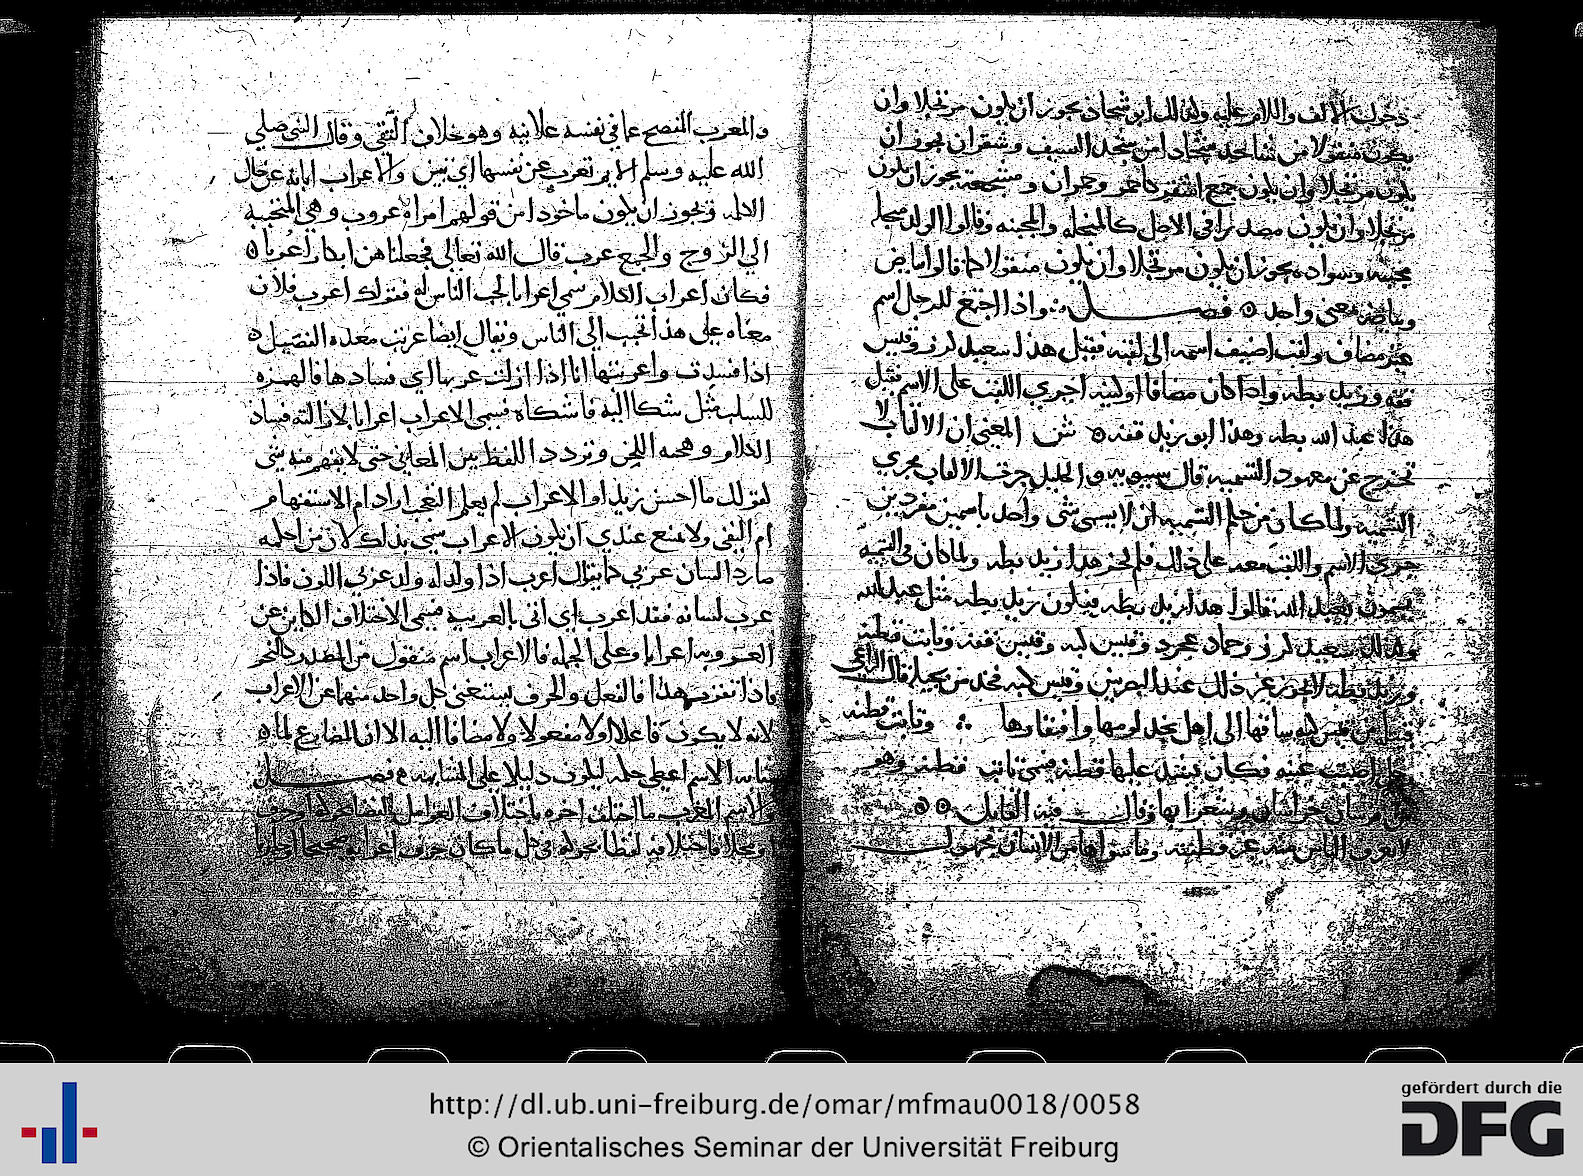 دخول الالف واللام عليه ولذلك ابو شحاذ يجوز ان يكون مرتجلا وان
يكون منقولا من شاحذ اذا من شحذ السيف وشقران يجوز ان
يكون مرتجلا وان يكون جمع اشقر كاحمر وحمران و يجوز ان يكون
مرتجلا وان يكون مصدرا في الاصل كالمبخله والمجبنه وقالوا الولد مبخله
مجبنه وسواده يجوز ان يكون مرتجلا وان يكون منقولا كما قالوا بياض
وبياضه بمعنى واحد فصل واذا اجتمع للرجل اسم
غير مضاف ولقب اضيف اسمه الى لقبه فقيل هذا سعيد كرز وقيس
قفه وزيد بطه واذا كان مضافا او كنيه اجري اللقب على الاسم فقيل
هذا عبد الله بطه وهذا ابو زيد قفه ش المعنى ان الالقاب لا
تخرج عن معهود التسميه قال سيبويه والخليل جرت الالقاب مجرى
التسميه ولما كان من حكم التسميه ان لا يسمى شى واحد باسمين مفردين
جرى الاسم واللقب معه على ذلك فلم يجز هذا زيد بطه ولما كان في التسميه
يسمون بعبد الله قالوا هذا زيد بطه فيكون زيد بطه مثل عبد الله
وكذلك سعيد كرز وحماد عجرد وقيس كبه وقيس قفه وثابت قطنه
وزيد بطه لا يجوز غير ذلك عند البصريين وقيس كبه فخذ من بجيله قال الراعي
قبيله من قيس كبه ساقها الى اهل نجد لومها وافتقارها وثابت قطنه
رجل اصيبت عينه فكان يضع عليها قطنه فسمي ثابت قطنه وهو
من فرسان خراسان وشعرايها وقال فيه القايل
لا يعرف الناس منه غير قطنته وما سواها من الانسان مجهول
والمعرب المفصح عما في نفسه علانيه وهو خلاف التقى وقال النبي صلى
الله عليه وسلم الايم تعرب عن نفسها اي تبين والاعراب ابانه عن حال
الكلمه ويجوز ان يكون ماخوذا من قولهم امراه عروب وهي المتحببه
الى الزوج والجمع عرب قال الله تعالى فجعلناهن ابكارا عربا
فكان اعراب الكلام سمي اعرابا لحب الناس له فقولك اعرب فلان
معناه على هذا تحبب الى الناس ويقال ايضا عربت معده الفصيل
اذا فسدت واعربتها انا اذا ازلت عربها اي فسادها فالهمزه
للسلب مثل شكا اليه فاشكاه فسمي الاعراب اعرابا لازالته فساد
الكلام وهجنه اللحن وتردد اللفظ بين المعاني حتى لا يفهم منه شى
كقولك ما احسن زيد لولا الاعراب لم يعلم التعجب اراد ام الاستفهام
ام النفي ولا يمتنع عندي ان يكون الاعراب سمي بذلك لان من احكمه
صار ذا لسان عربي كما يقال اعرب اذا ولد له ولد عربي اللون فاذا
عرب لسانه فقد اعرب اي اتى بالعربيه فسمي الاختلاف الكاين عن
العربيه اعرابا وعلى الجمله فالاعراب اسم منقول من المصدر كالنحو
فاذا تقرر هذا فالفعل والحرف يستغني كل واحد منهما عن الاعراب
لانه لا يكون فاعلا ولا مفعولا ولا مضافا اليه الا ان المضارع لما
شابه الاسم اعطي حكمه ليكون دليلا على المشابهه فصل
والاسم المعرب ما اختلف اخره باختلاف العوامل لفظا بحركه او حرف
او محلا فاختلافه لفظا بحركه في كل ما كان حرف اعرابه صحيحا او جاريا
http://dl.ub.uni-freiburg.de/omar/mfmau0018/0058
© Orientalisches Seminar der Universität Freiburg
gefördert durch die
DFG